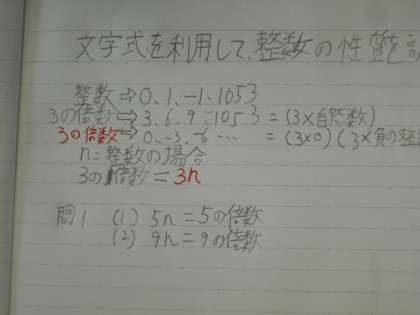 文字式を利用して、整数の性質を
整数⇒0、1、-1・1053
3の倍数⇔3、6、9…1053=(3×自然数)
3の倍数⇒0、-3、-6…=(3×0)(3×負の整
n=整数の場合
3の倍数=3n
問1 (1) 5n=5の倍数
(2) 9n=9の倍数